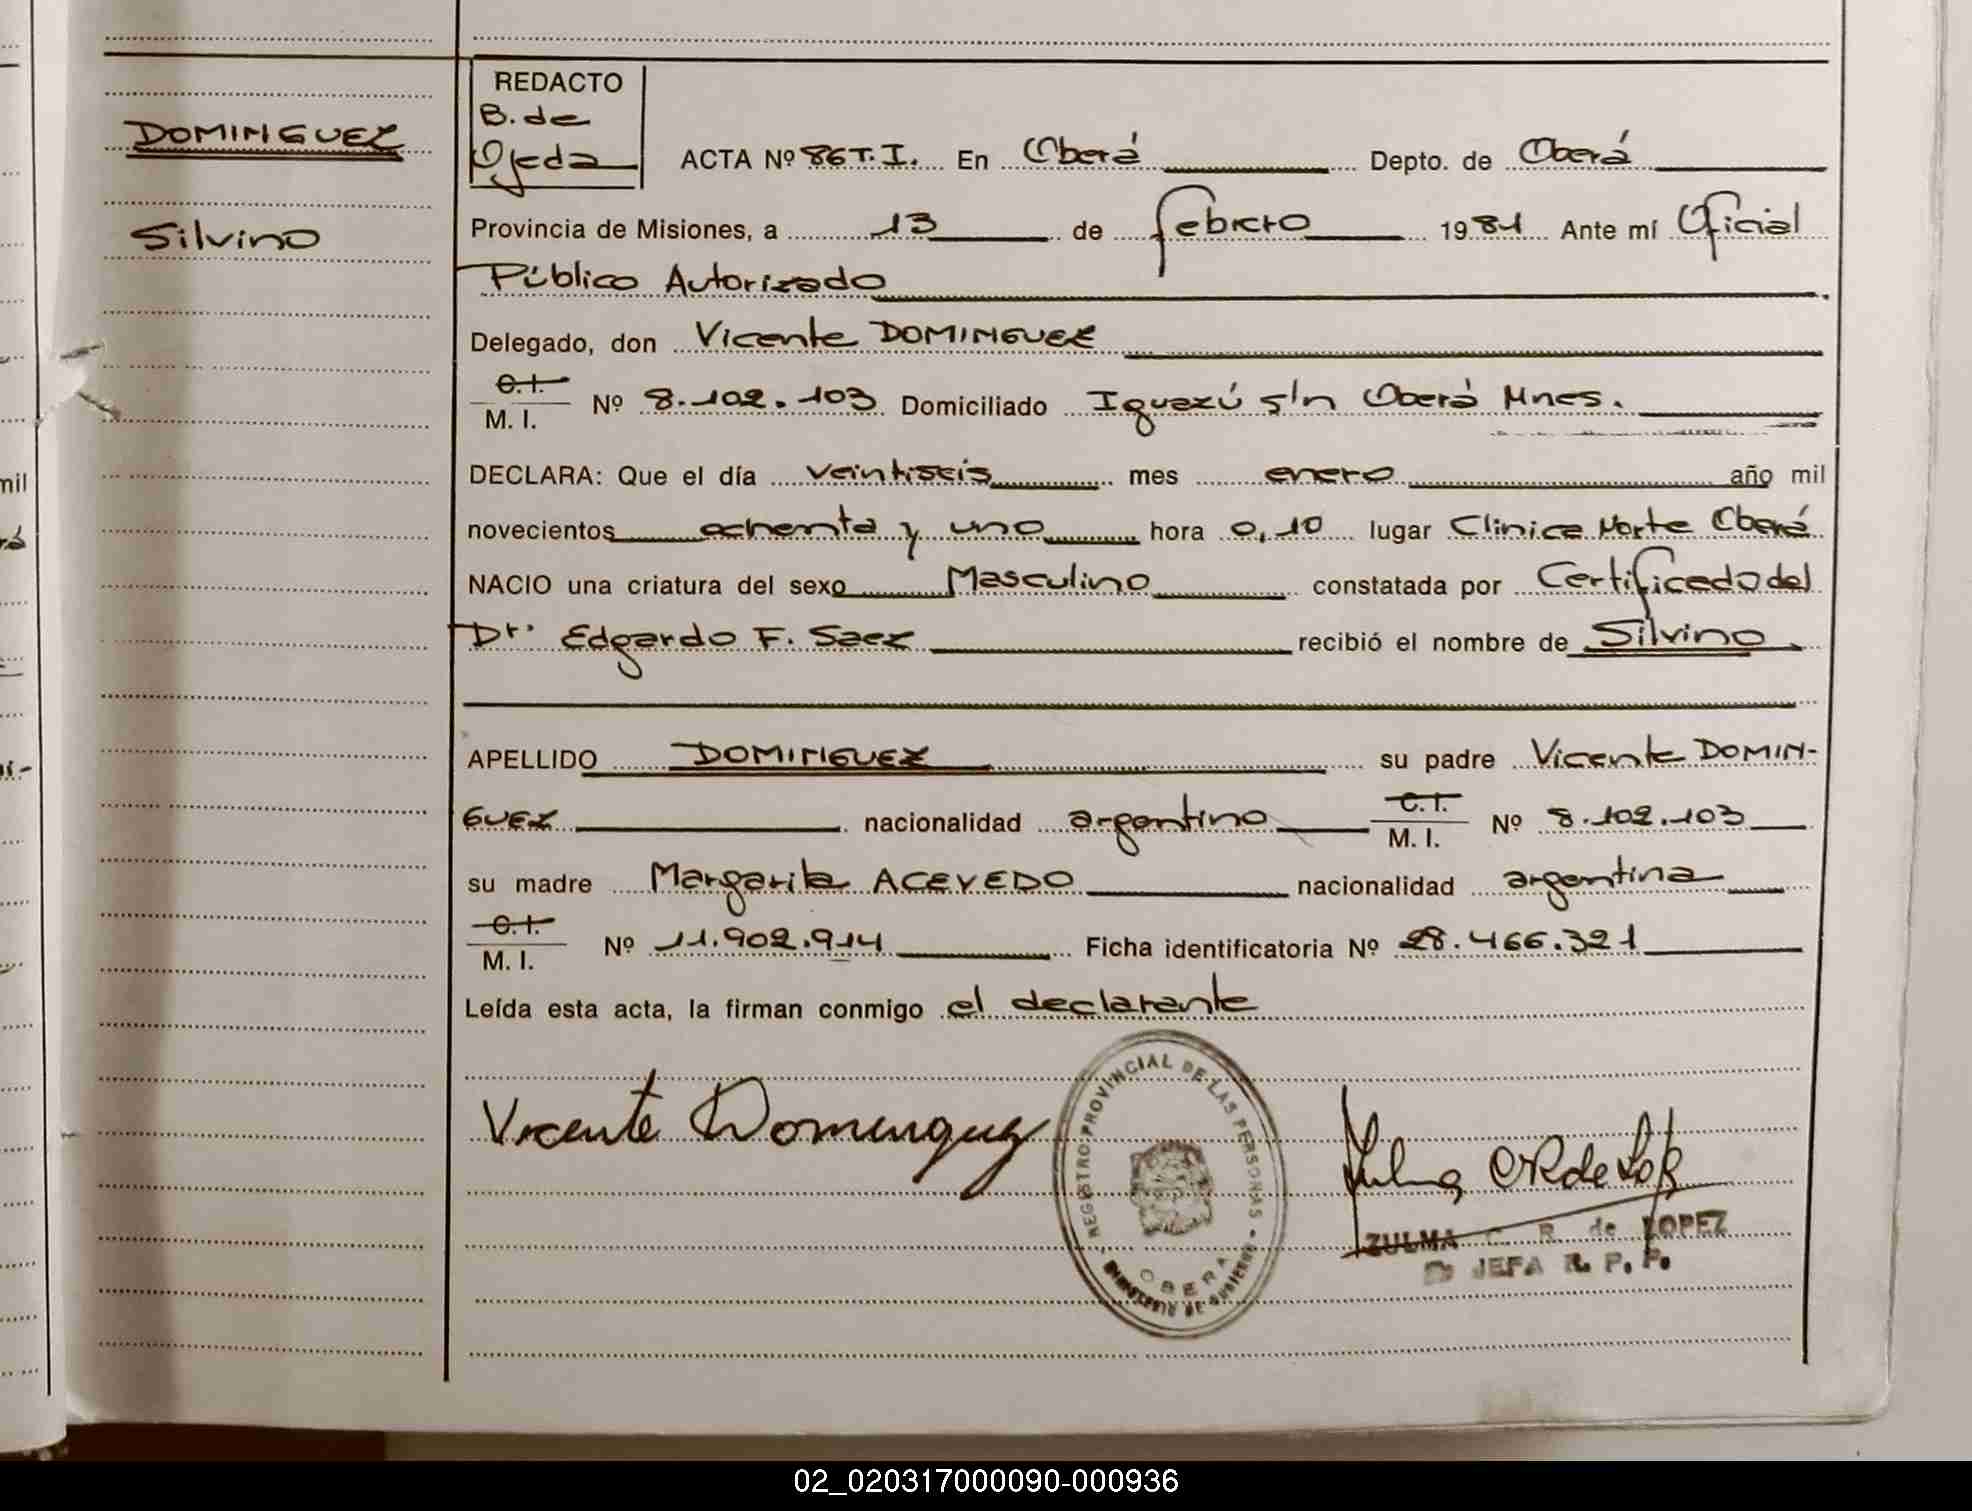 REDACTO
B. de
Ojeda
DOMINGUEZ
Silvino
ACTA Nº 86 T. I. En Oberá Depto. de Oberá
Provincia de Misiones, a 13 de febrero 1981 Ante mí Oficial
Público Autorizado
Delegado, don Vicente DOMINGUEZ
C. I.
M. I. Nº 8.102.103 Domiciliado Iguazú s/n Oberá Mnes.
DECLARA: Que el día veintiseis mes enero año mil
novecientos ochenta y uno hora 0,10 lugar Clinica Norte Oberá
NACIO una criatura del sexo Masculino constatada por Certificado del
Dr. Edgardo F. Saez recibió el nombre de Silvino
APELLIDO DOMINGUEZ su padre Vicente DOMIN-
GUEZ nacionalidad argentino C. I.
M. I. Nº 8.102.103
su madre Margarita ACEVEDO nacionalidad argentina
C. I.
M. I. Nº 11.902.914 Ficha identificatoria Nº 28.466.321
Leída esta acta, la firman conmigo el declarante
Vicente Dominguez
REGISTRO PROVINCIAL DE LAS PERSONAS
OBERA
MINISTERIO DE GOBIERNO
Zulma CR de Lopez
ZULMA C. R. de LOPEZ
JEFA R. P. P.
mil
02_020317000090-000936